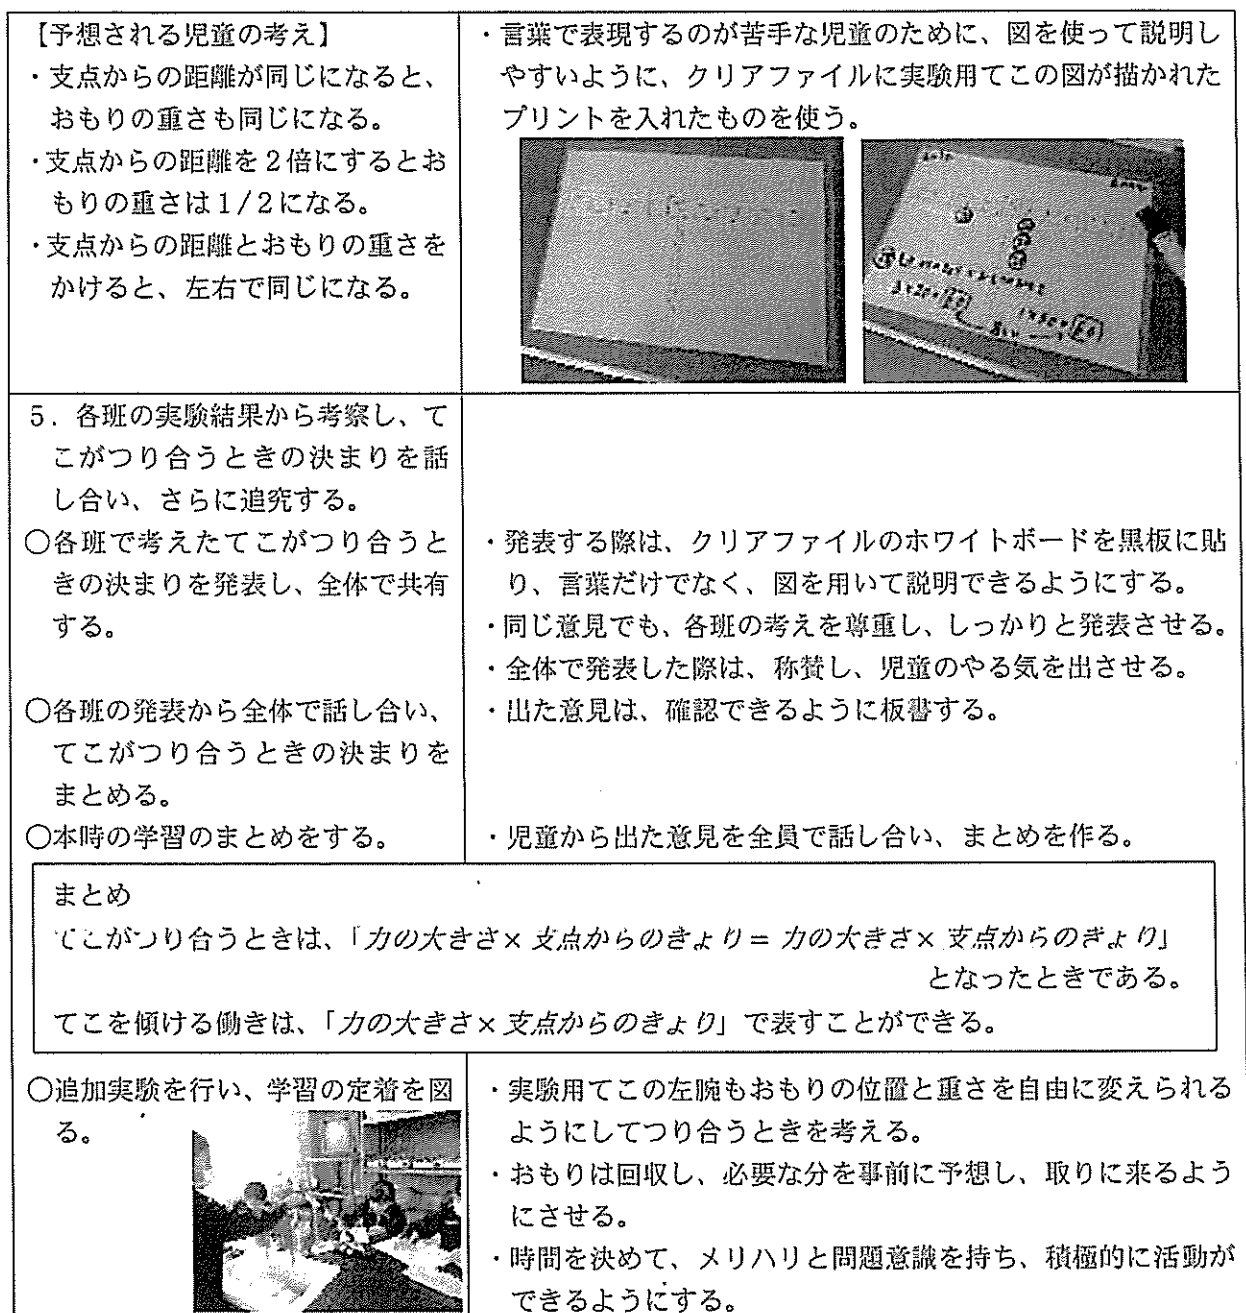 【予想される児童の考え】
・支点からの距離が同じになると、
おもりの重さも同じになる。
・支点からの距離を2倍にするとお
もりの重さは1/2になる。
・支点からの距離とおもりの重さを
かけると、左右で同じになる。
・言葉で表現するのが苦手な児童のために、図を使って説明し
やすいように、クリアファイルに実験用てこの図が描かれた
プリントを入れたものを使う。
5．各班の実験結果から考察し、て
こがつり合うときの決まりを話
し合い、さらに追究する。
○各班で考えたてこがつり合うと
きの決まりを発表し、全体で共有
する。
・発表する際は、クリアファイルのホワイトボードを黒板に貼
り、言葉だけでなく、図を用いて説明できるようにする。
・同じ意見でも、各班の考えを尊重し、しっかりと発表させる。
・全体で発表した際は、称賛し、児童のやる気を出させる。
○各班の発表から全体で話し合い、
てこがつり合うときの決まりを
まとめる。
・出た意見は、確認できるように板書する。
○本時の学習のまとめをする。
・児童から出た意見を全員で話し合い、まとめを作る。
まとめ
てこがつり合うときは、「力の大きさ×支点からのきょり＝力の大きさ×支点からのきょり」
となったときである。
てこを傾ける働きは、「力の大きさ×支点からのきょり」で表すことができる。
○追加実験を行い、学習の定着を図
る。
・実験用てこの左腕もおもりの位置と重さを自由に変えられる
ようにしてつり合うときを考える。
・おもりは回収し、必要な分を事前に予想し、取りに来るよう
にさせる。
・時間を決めて、メリハリと問題意識を持ち、積極的に活動が
できるようにする。